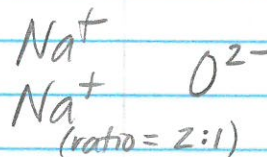 Na⁺
Na⁺ O²⁻
(ratio = 2:1)